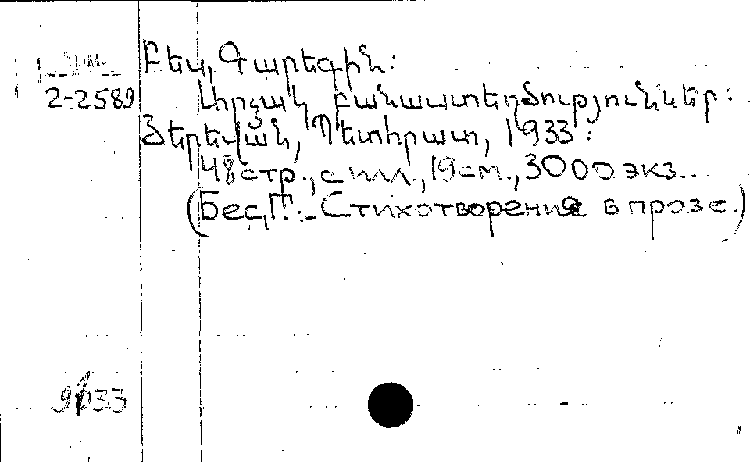 Բես, Գարեգին:
2-2589 Լիրջակ բանաստեղծություններ:
Յերեվան, Պետհրատ, 1933:
48 стр., с илл., 19 см., 3000 экз.
(Бес, Г. - Стихотворения в прозе.)
933